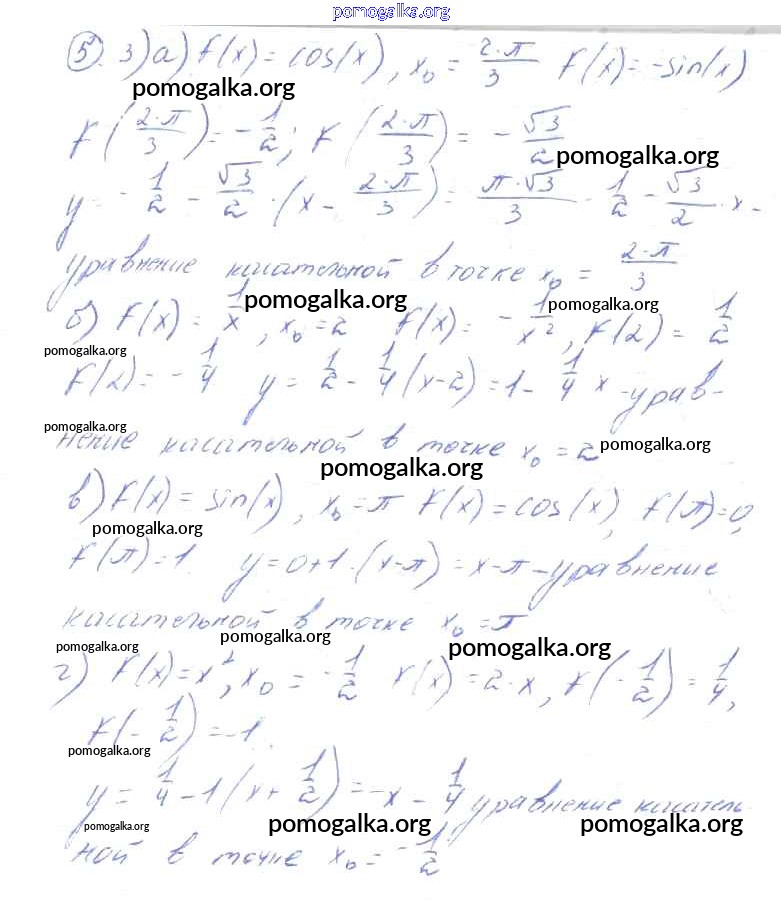 pomogalka.org
5. 3) а) f(x) = cos(x), x₀ = 2·π/3 f(x) = -sin(x)
pomogalka.org
f(2·π/3) = -1/2; f(2·π/3) = -√3/2
pomogalka.org
y = -1/2 - √3/2 · (x - 2·π/3) = π·√3/3 - 1/2 - √3/2 · x -
уравнение касательной в точке x₀ = 2·π/3
pomogalka.org pomogalka.org
б) f(x) = 1/x, x₀ = 2 f(x) = -1/x², f(2) = 1/2
pomogalka.org
f(2) = -1/4 y = 1/2 - 1/4(x-2) = 1 - 1/4 x - урав-
pomogalka.org
нение касательной в точке x₀ = 2
pomogalka.org
pomogalka.org
в) f(x) = sin(x), x₀ = π f(x) = cos(x), f(π) = 0,
pomogalka.org
f(π) = 1. y = 0+1·(x-π) = x-π - уравнение
касательной в точке x₀ = π
pomogalka.org pomogalka.org pomogalka.org
г) f(x) = x², x₀ = -1/2 f(x) = 2·x, f(-1/2) = 1/4,
f(-1/2) = -1.
pomogalka.org
y = 1/4 - 1(x + 1/2) = -x - 1/4 уравнение касатель-
pomogalka.org pomogalka.org pomogalka.org
ной в точке x₀ = -1/2